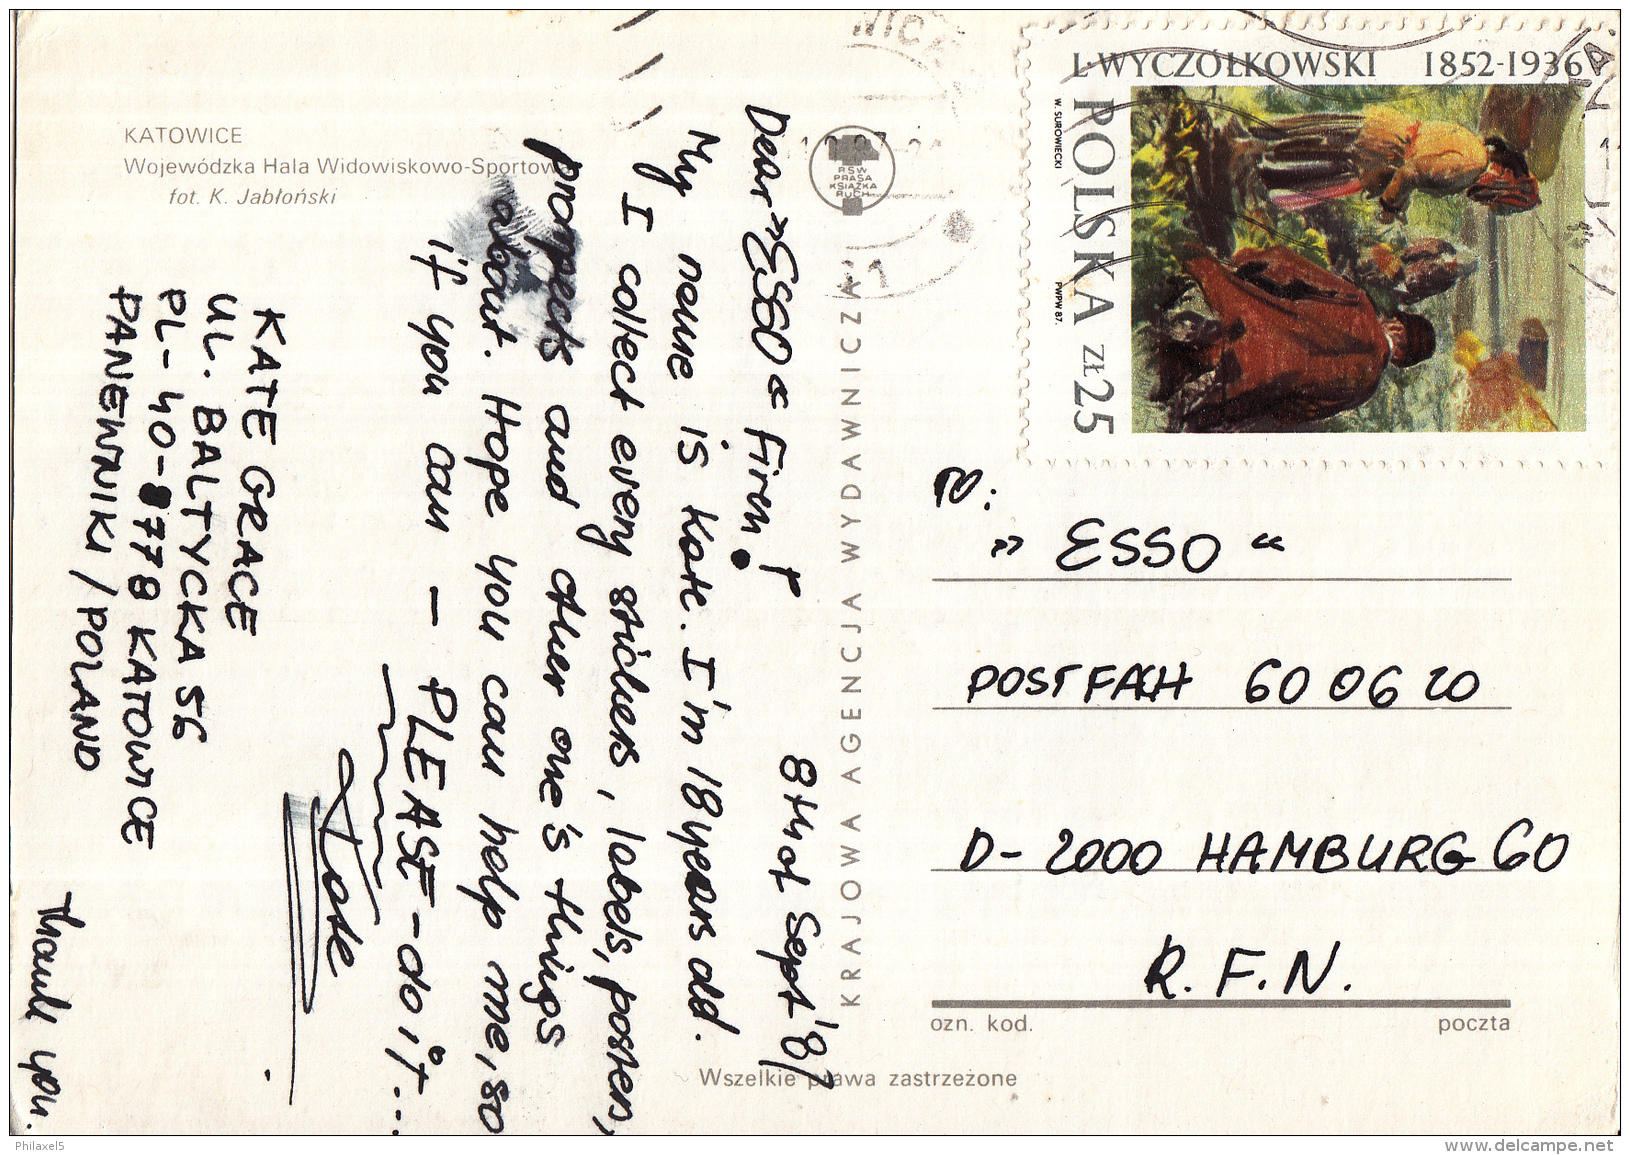 KATOWICE
Wojewódzka Hala Widowiskowo-Sportowa
fot. K. Jabłoński
8th of Sept '87
Dear »ESSO« Firm!
My name is Kate. I'm 18 years old.
I collect every stickers, labels, posters,
prospects and other one's things
about. Hope you can help me, so
if you can – PLEASE – do it...
Kate
KATE GRACE
UL. BALTYCKA 56
PL-40-8778 KATOWICE
PANEWNIKI / POLAND
Thank you.
KRAJOWA AGENCJA WYDAWNICZA
RSW
PRASA
KSIĄŻKA
RUCH
1
L·WYCZÓŁKOWSKI 1852-1936
POLSKA ZŁ 25
W. SUROWIECKI
PWPW 87.
»ESSO«
POSTFACH 60 06 20
D-2000 HAMBURG 60
R.F.N.
ozn. kod.
poczta
Wszelkie prawa zastrzeżone
Philaxel5
www.delcampe.net